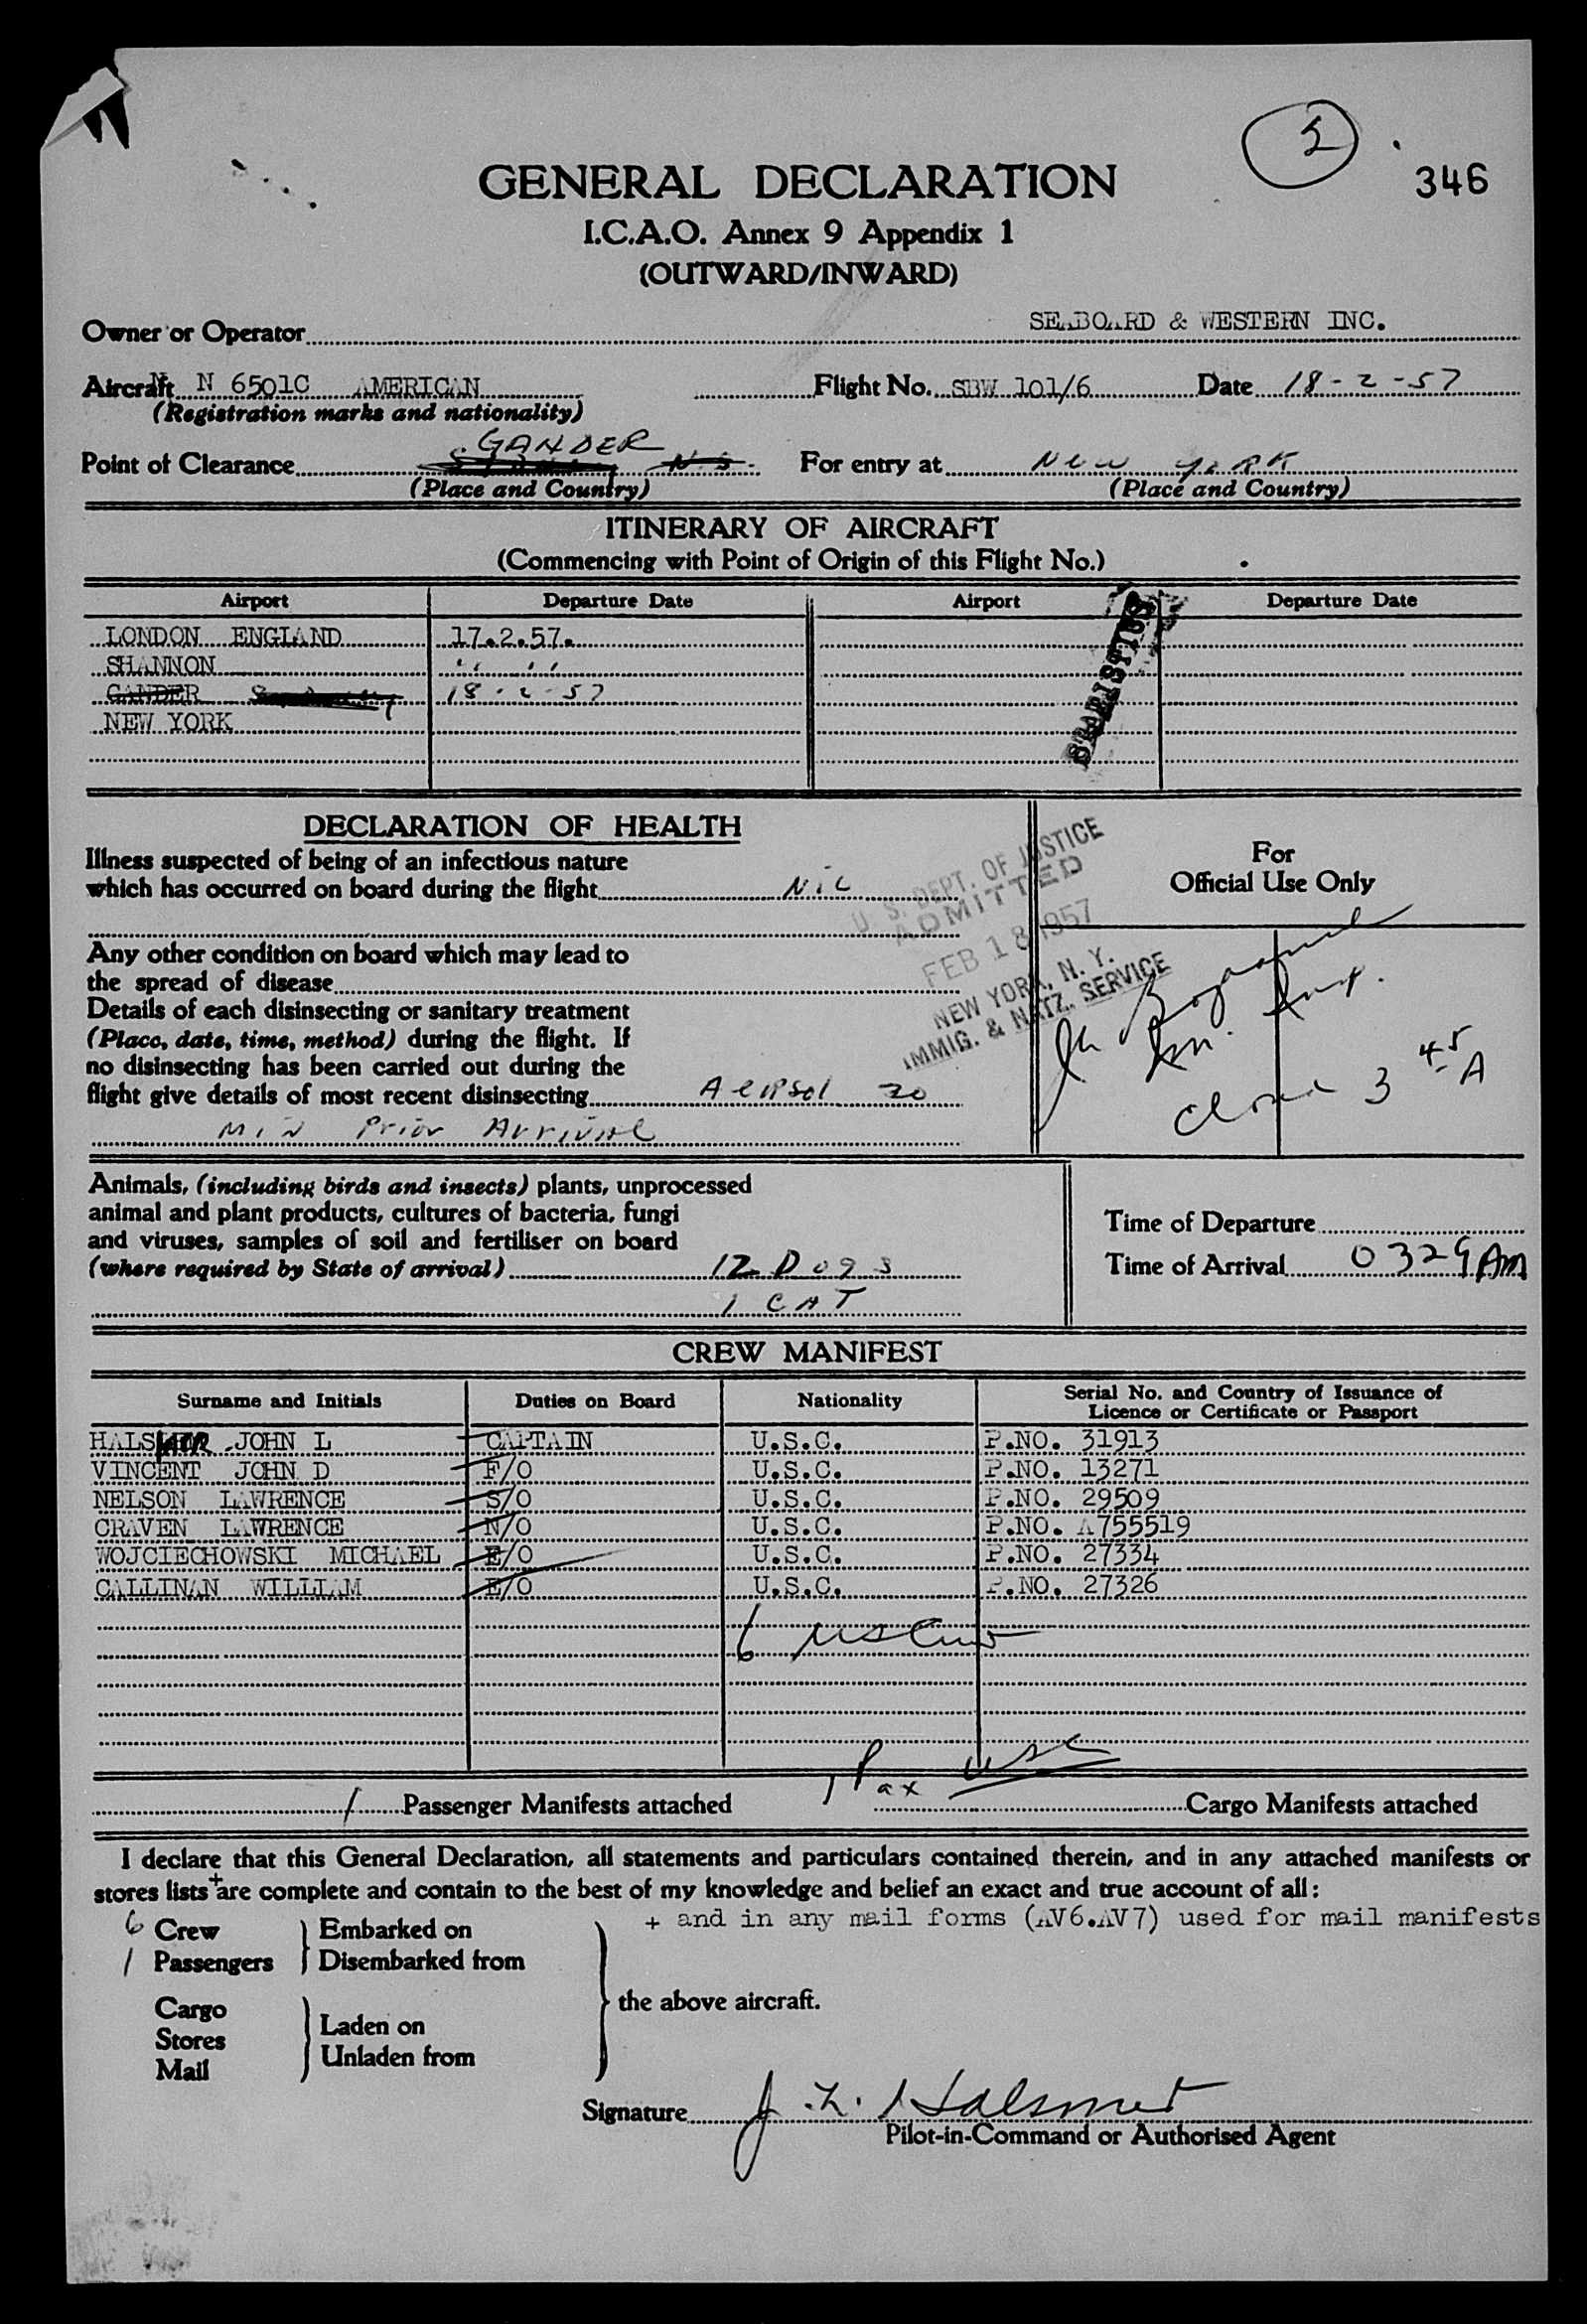 5
346
GENERAL DECLARATION
I.C.A.O. Annex 9 Appendix 1
(OUTWARD/INWARD)
Owner or Operator SEABOARD & WESTERN INC.
Aircraft N 6501C AMERICAN Flight No. SBW 101/6 Date 18-2-57
(Registration marks and nationality)
GANDER
Point of Clearance N.S. For entry at New York
(Place and Country) (Place and Country)
ITINERARY OF AIRCRAFT
(Commencing with Point of Origin of this Flight No.)
Airport Departure Date Airport Departure Date
LONDON ENGLAND 17.2.57.
SHANNON " "
GANDER 18-2-57
NEW YORK
STATISTICS
DECLARATION OF HEALTH
Illness suspected of being of an infectious nature
which has occurred on board during the flight Nil
Any other condition on board which may lead to
the spread of disease
Details of each disinsecting or sanitary treatment
(Place, date, time, method) during the flight. If
no disinsecting has been carried out during the
flight give details of most recent disinsecting Aersol 30
MIN Prior Arrival
U. S. DEPT. OF JUSTICE
ADMITTED
FEB 18 1957
NEW YORK, N. Y.
IMMIG. & NATZ. SERVICE
For
Official Use Only
Im. Insp.
Closed 3 45 A
Animals, (including birds and insects) plants, unprocessed
animal and plant products, cultures of bacteria, fungi
and viruses, samples of soil and fertiliser on board
(where required by State of arrival) 12 Dogs
1 CAT
Time of Departure
Time of Arrival 0329 AM
CREW MANIFEST
Surname and Initials Duties on Board Nationality Serial No. and Country of Issuance of
Licence or Certificate or Passport
JOHN L CAPTAIN U.S.C. P.NO. 31913
VINCENT JOHN D F/O U.S.C. P.NO. 13271
NELSON LAWRENCE S/O U.S.C. P.NO. 29509
CRAVEN LAWRENCE N/O U.S.C. P.NO. A755519
WOJCIECHOWSKI MICHAEL E/O U.S.C. P.NO. 27334
CALLINAN WILLIAM E/O U.S.C. P.NO. 27326
6
1 Pax USC
1 Passenger Manifests attached Cargo Manifests attached
I declare that this General Declaration, all statements and particulars contained therein, and in any attached manifests or
stores lists + are complete and contain to the best of my knowledge and belief an exact and true account of all:
+ and in any mail forms (AV6.AV7) used for mail manifests
6 Crew Embarked on
1 Passengers Disembarked from
the above aircraft.
Cargo
Stores Laden on
Mail Unladen from
Signature J. L. Halsmer
Pilot-in-Command or Authorised Agent